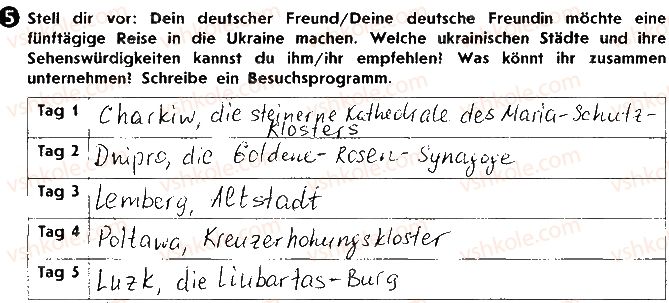 5 Stell dir vor: Dein deutscher Freund/Deine deutsche Freundin möchte eine
fünftägige Reise in die Ukraine machen. Welche ukrainischen Städte und ihre
Sehenswürdigkeiten kannst du ihm/ihr empfehlen? Was könnt ihr zusammen
unternehmen? Schreibe ein Besuchsprogramm.
Tag 1 Charkiw, die steinerne Kathedrale des Maria-Schutz-
klosters
Tag 2 Dnipro, die Goldene-Rosen-Synagoge
Tag 3 Lemberg, Altstadt
Tag 4 Poltawa, Kreuzerhohungskloster
Tag 5 Luzk, die Liubartas-Burg